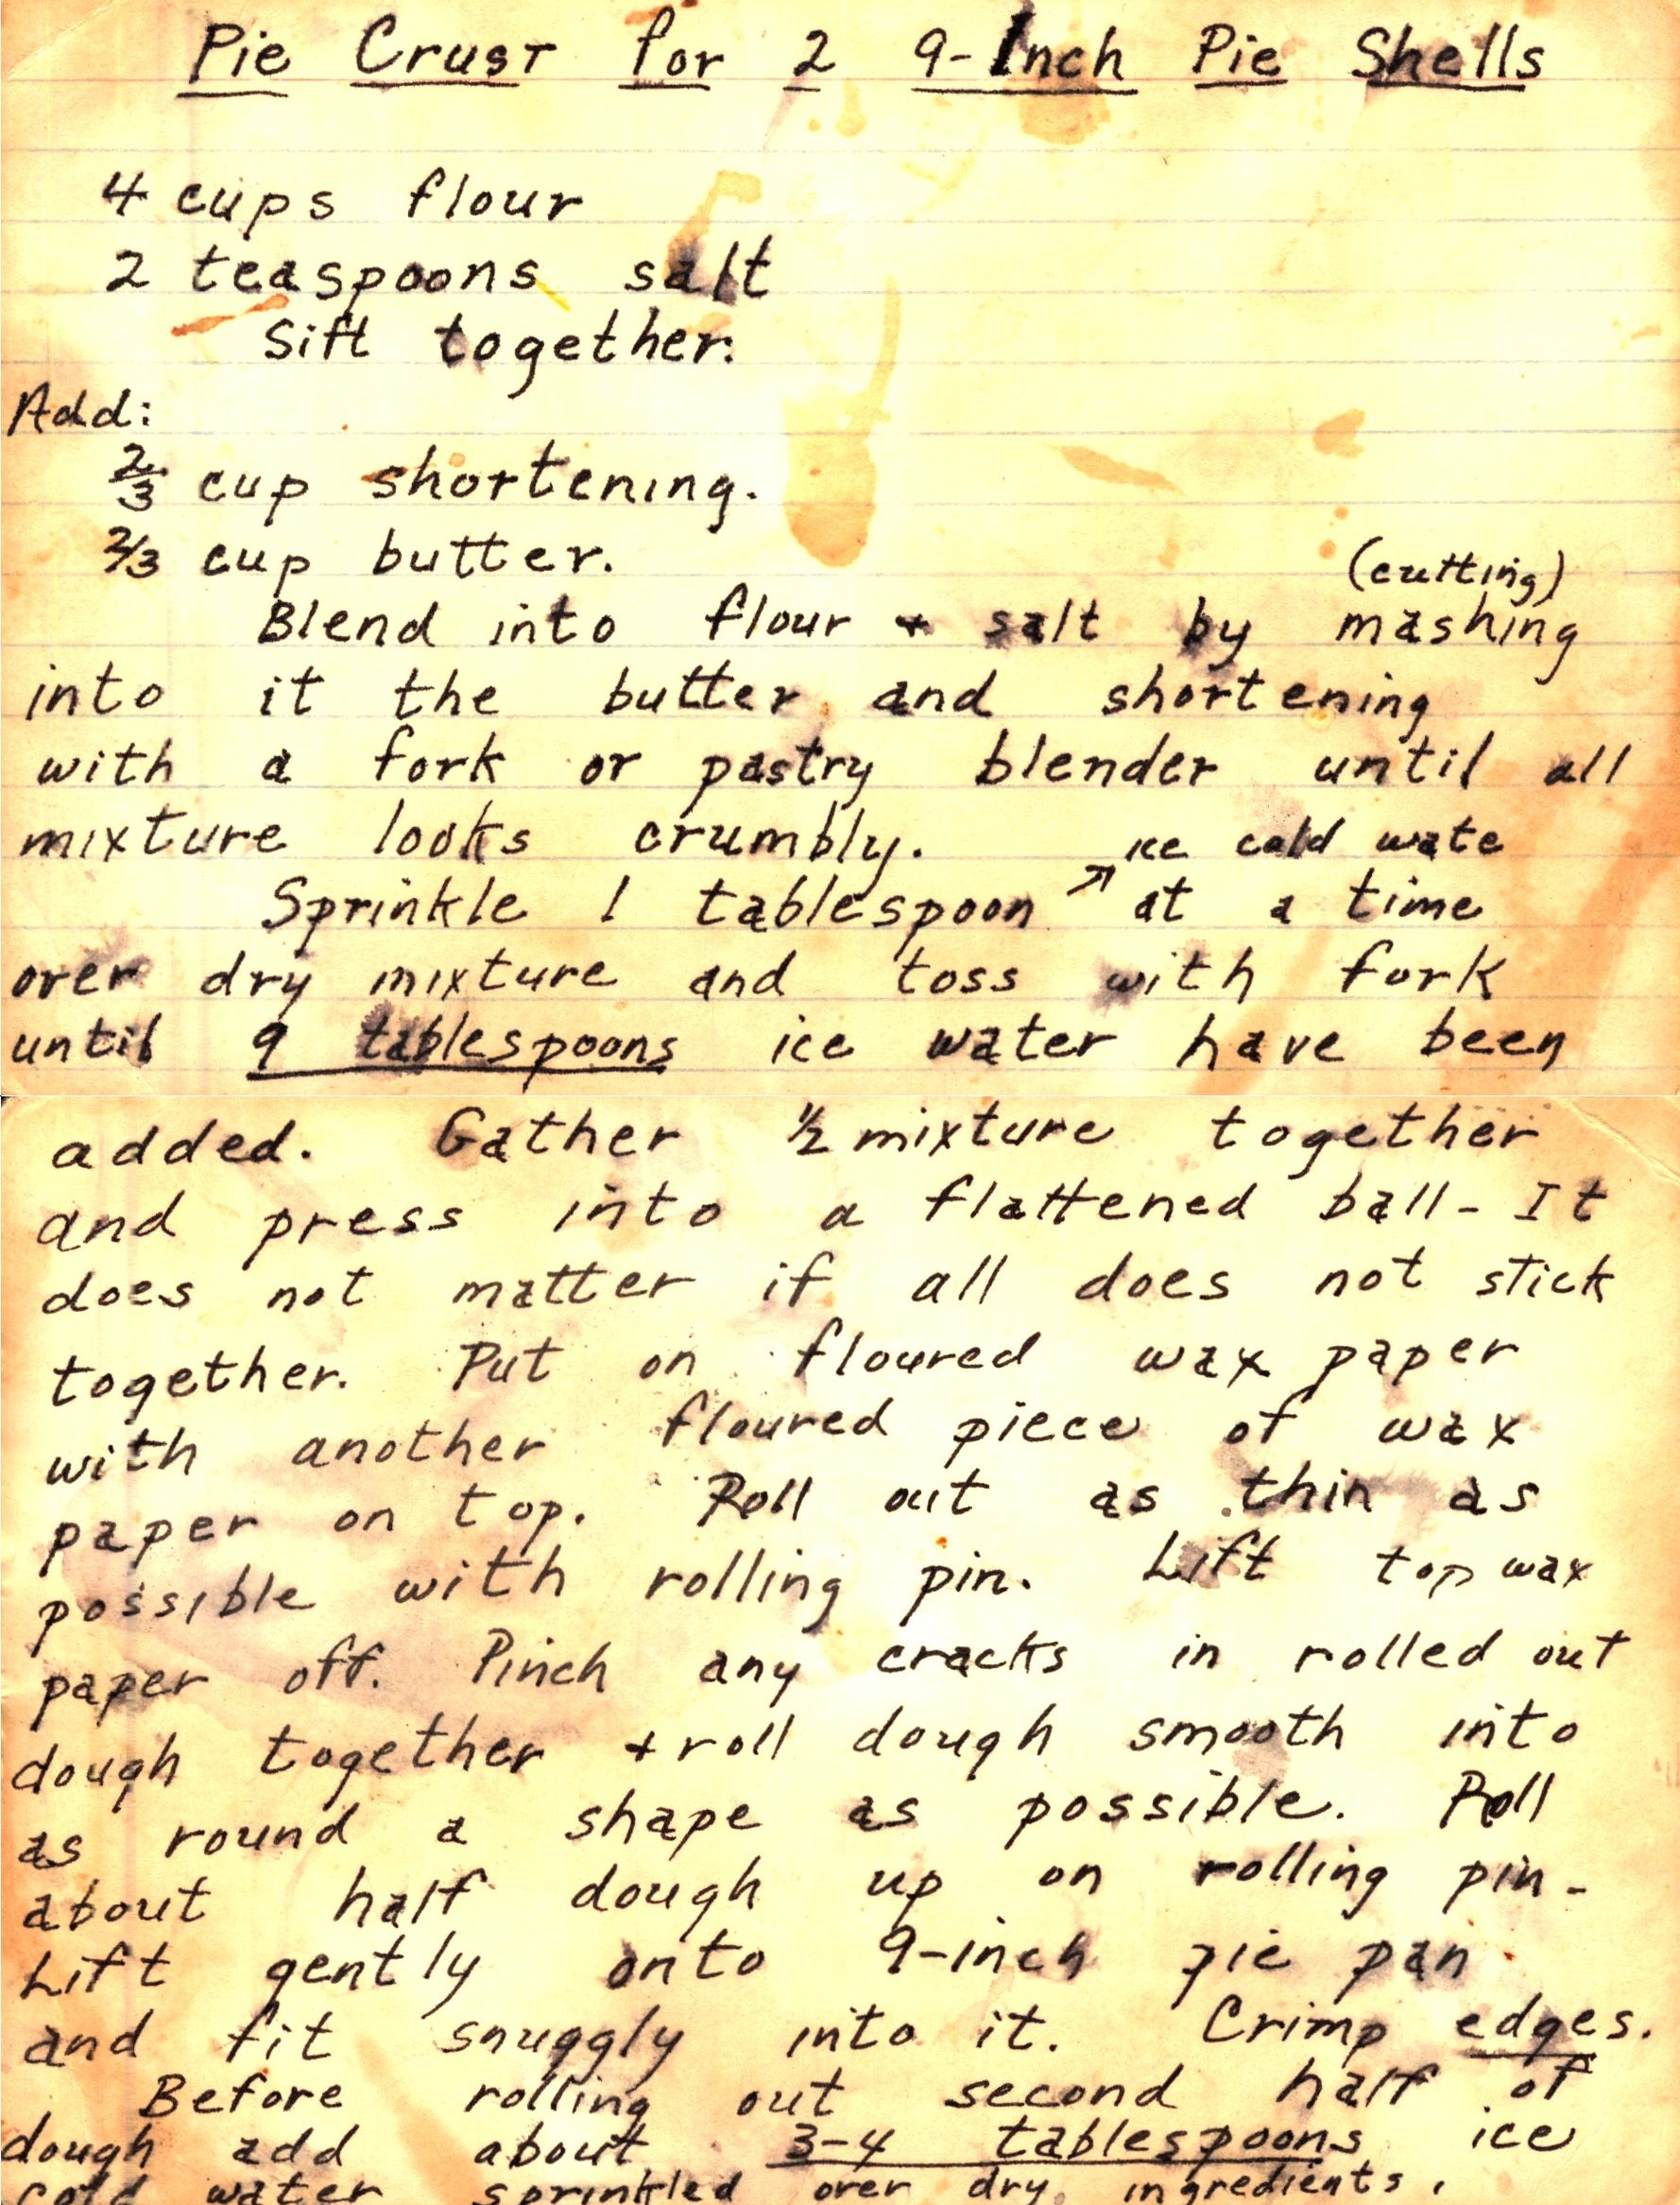 Pie Crust for 2 9-Inch Pie Shells
4 cups flour
2 teaspoons salt
Sift together.
Add:
2/3 cup shortening.
2/3 cup butter.
(cutting)
Blend into flour + salt by mashing
into it the butter and shortening
with a fork or pastry blender until all
mixture looks crumbly.
ice cold wate
Sprinkle 1 tablespoon ↗ at a time
over dry mixture and toss with fork
until 9 tablespoons ice water have been
added. Gather 1/2 mixture together
and press into a flattened ball - It
does not matter if all does not stick
together. Put on floured wax paper
with another floured piece of wax
paper on top. Roll out as thin as
possible with rolling pin. Lift top wax
paper off. Pinch any cracks in rolled out
dough together + roll dough smooth into
as round a shape as possible. Roll
about half dough up on rolling pin -
Lift gently onto 9-inch pie pan
and fit snuggly into it. Crimp edges.
Before rolling out second half of
dough add about 3-4 tablespoons ice
cold water sprinkled over dry ingredients.